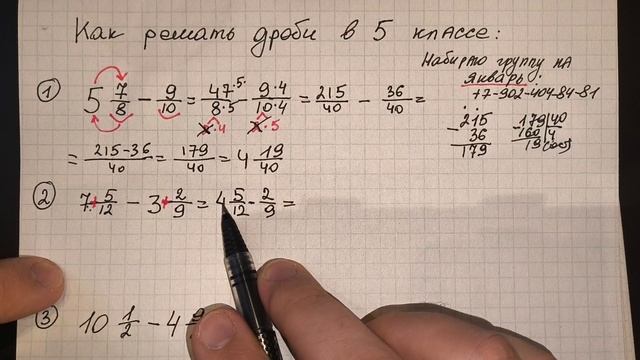 Как решать дроби в 5 классе:
Набираю группу на
январь.
+7-902-404-84-81
① 5 7/8 − 9/10 = 47·5/8·5 − 9·4/10·4 = 215/40 − 36/40 =
·4 ·5
= 215-36/40 = 179/40 = 4 19/40
− 215
36
179
− 179|40
160|4
19 (ост)
② 7+5/12 − 3+2/9 = 4 5/12 - 2/9 =
③ 10 1/2 − 4